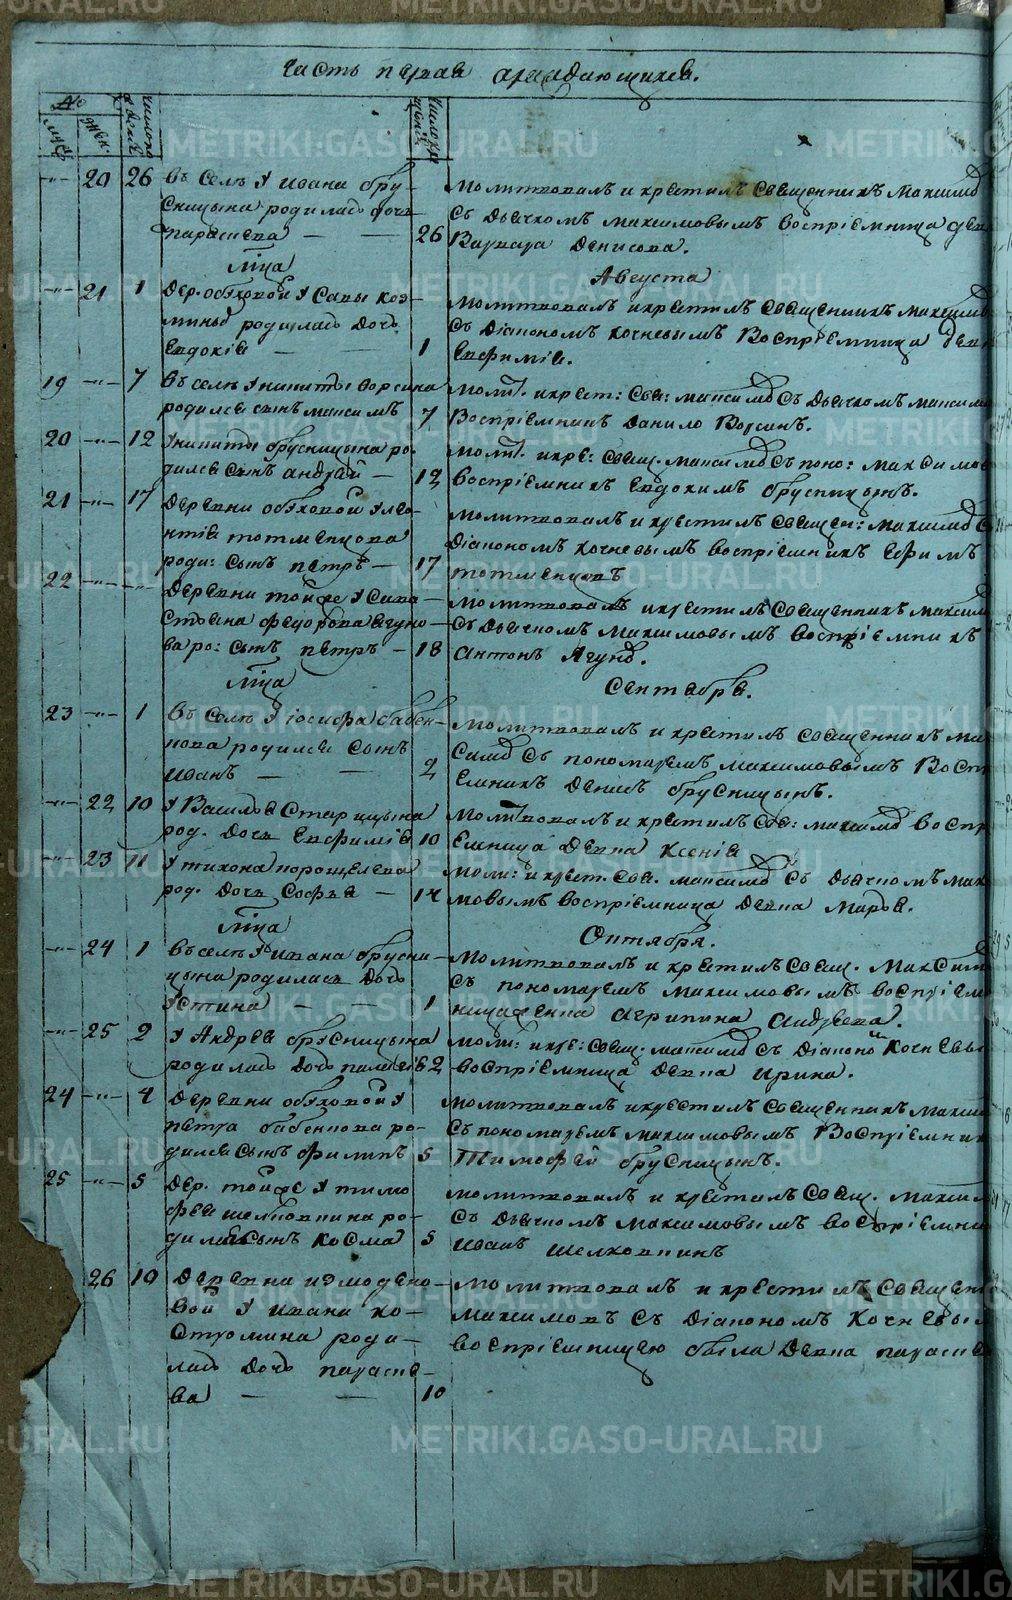 часть первая ораждающихся.
№
муж
жен.
число рожденія
число крещенія
20 26 въ селѣ У ивана бру-
сницына родилась дочь
параскева 26
молитвовалъ и крестилъ священникъ максимо
съ дьячкомъ максимовымъ воспріемница
Варвара Денисова.
Мца
Августа
21 1 Дер. обуховой У Савы коз-
родилась дочь
Евдокія 1
Молитвовалъ и крестилъ священникъ максимо
съ діакономъ кочневымъ Воспріемница
Евфимія.
19 7 въ селѣ У никиты ворсина
родился сынъ максимъ 7
молит. и крест: свя: максимо съ дьячкомъ максимо
Воспріемникъ данило Ворсинъ.
20 12 У никиты брусницына ро-
дился сынъ андрей 12
молит. и кре: свящ. максимо съ поно: максимов
воспріемникъ Евдокимъ брусницынъ.
21 17 Деревни обуховой У лео-
нтія тотменцова
роди: сынъ петръ 17
молитвовалъ и крестилъ священ: максимо с
діакономъ кочневымъ воспріемникъ Ефимъ
тотменцовъ
22 Деревни тойже У сава-
стьяна федорова ягуно-
ва ро: сынъ петръ 18
молитвовалъ и крестилъ священникъ максимо
съ дьячкомъ максимовымъ воспріемникъ
антонъ Ягуно.
Мца
сентября.
23 1 въ селѣ У іосифа бабен-
кова родился сынъ
иванъ 2
молитвовалъ и крестилъ священникъ ма
симо съ пономаремъ максимовымъ Воспр
емникъ Денисъ брусницынъ.
22 10 У Василья Старицына
род. дочь Евфимія 10
молитвовалъ и крестилъ свя: максимо воспр
емница девка Ксенія
23 11 У тихона порошелева
род. дочь Софья 14
моли: и крест. свя. максимо съ дьячкомъ мак
мовымъ воспріемница девка Марфа.
Мца
Октября.
24 1 въ селѣ У ивана брусни-
цына родилась дочь
Устина 1
молитвовалъ и крестилъ свящ. Максим
съ пономаремъ максимовымъ воспріем
ница женка агрипина андреева.
25 2 У Андрея брусницына
родилась дочь палагія 2
моли: и кре: свящ. максимо съ діаконо кочневы
воспріемница девка ирина.
24 4 Деревни обуховой У
петра бабенкова ро-
дился сынъ филипъ 5
молитвовалъ и крестилъ священникъ максимо
съ пономаремъ максимовымъ Воспріемник
Тимофей брусницынъ.
25 5 Дер. тойже У тимо
фея шелковкина ро-
дился сынъ косма 5
молитвовалъ и крестилъ свящ. максим
съ дьячкомъ максимовымъ воспріемни
иванъ шелковкинъ
26 10 Деревни измодено-
вой У ивана ко-
стромина роди-
лась дочь параске-
ва 10
молитвовалъ и крестилъ священ
максимовъ съ діакономъ Кочневы
воспріемницею была девка параске